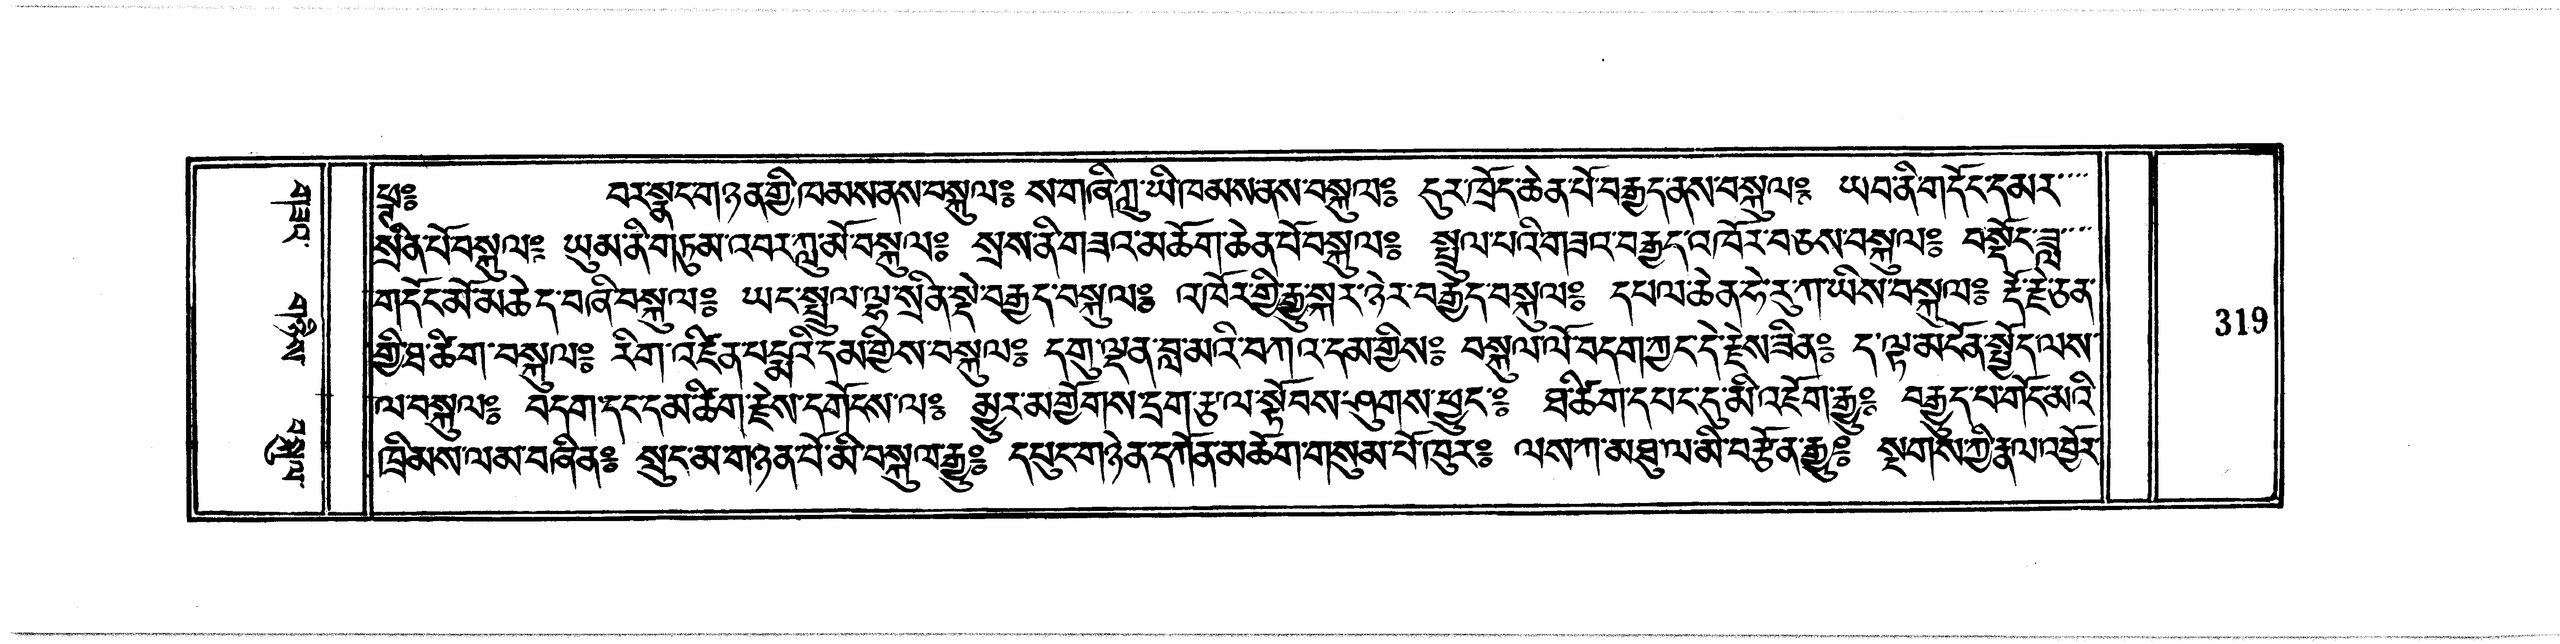 ཕྲཿ བར་སྣང་གཉན་གྱི་ཁམས་ནས་བསྐུལ༔ ས་གཞི་ཀླུ་ཡི་ཁམས་ནས་བསྐུལ༔ དུར་ཁྲོད་ཆེན་པོ་བརྒྱད་ནས་བསྐུལ༔ ཡབ་ནི་གདོང་དམར
སྲིན་པོ་བསྐུལ༔ ཡུམ་ནི་གཏུམ་འབར་ཀླུ་མོ་བསྐུལ༔ སྲས་ནི་གཟའ་མཆོག་ཆེན་པོ་བསྐུལ༔ སྤྲུལ་པའི་གཟའ་བརྒྱད་འཁོར་བཅས་བསྐུལ༔ བསྟོད་ཟླ
གདོང་མོ་མཆེད་བཞི་བསྐུལ༔ ཡང་སྤྲུལ་ལྷ་སྲིན་སྡེ་བརྒྱད་བསྐུལ༔ འཁོར་གྱི་རྒྱུ་སྐར་ཉེར་བརྒྱད་བསྐུལ༔ དཔལ་ཆེན་ཧེ་རུ་ཀ་ཡིས་བསྐུལ༔ རྡོ་རྗེ་ཅན་
གྱི་ཐ་ཚིག་བསྐུལ༔ རིག་འཛིན་པདྨའི་དམ་གྱིས་བསྐུལ༔ དགུ་ལྡན་བླ་མའི་བཀའ་དམ་གྱིས༔ བསྐུལ་ལོ་བདག་ཀྱང་དེ་རྗེས་ཟིན༔ ད་ལྟ་མངོན་སྤྱོད་ལས་
ལ་བསྐུལ༔ བདག་དང་དམ་ཚིག་རྗེས་དགོངས་ལ༔ མྱུར་མགྱོགས་དྲག་རྩལ་སྟོབས་ཤུགས་ཕྱུང་༔ ཐ་ཚིག་དཔང་དུ་མི་འཇོག་རྒྱུ༔ བརྒྱུད་པ་གོང་མའི་
ཁྲིམས་ལམ་བཞིན༔ སྲུང་མ་གཉན་པོ་མི་བསྐུལ་རྒྱུ༔ དཔུང་གཉེན་དཀོན་མཆོག་གསུམ་པོ་ཁུར༔ ལས་ཀ་མཐུ་ལ་མི་བརྩོན་རྒྱུ༔ སྔགས་ཀྱི་རྣལ་འབྱོར་
319